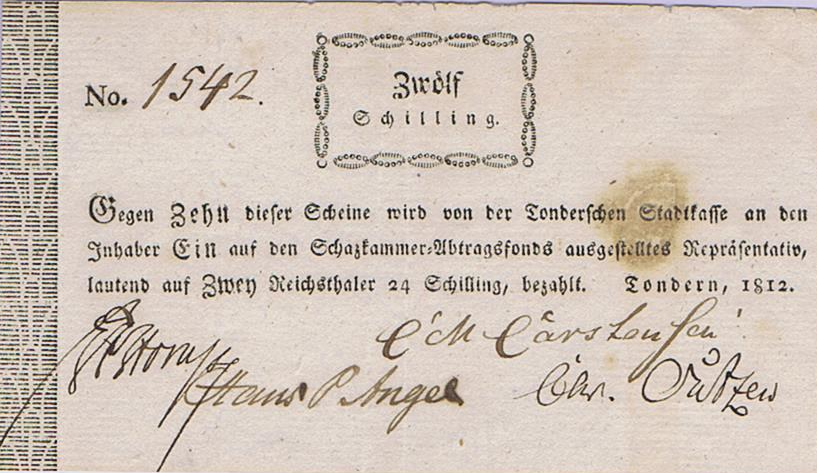 No. 1542.
Zwölf
Schilling.
Gegen Zehn dieser Scheine wird von der Tonderschen Stadtkasse an den
Inhaber Ein auf den Schazkammer-Abtragsfonds ausgestelltes Repräsentativ,
lautend auf Zwey Reichsthaler 24 Schilling, bezahlt. Tondern, 1812.
Carstensen
Hans P Angel Chr. Outzen